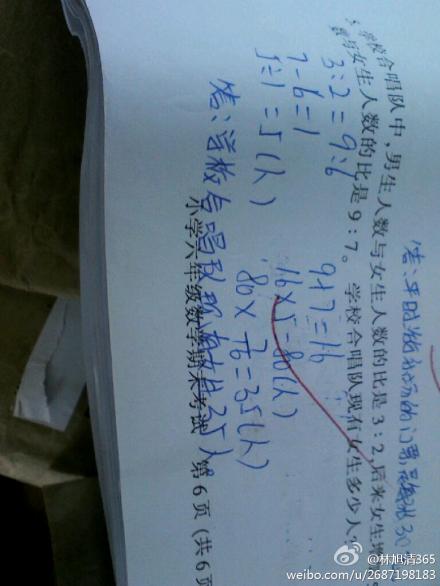 答:平时
的门票
30
5、学校合唱队中,男生人数与女生人数的比是3:2,后来女生增
数与女生人数的比是9:7。学校合唱队现有女生多少人?
3:2=9:6
7-6=1
5÷1=5(人)
9+7=16
16×5=80(人)
80×7/16=35(人)
答:学校合唱队现有女生35人
小学六年级数学期末考试 第6页(共6页
@林旭洁365
weibo.com/u/2687198183